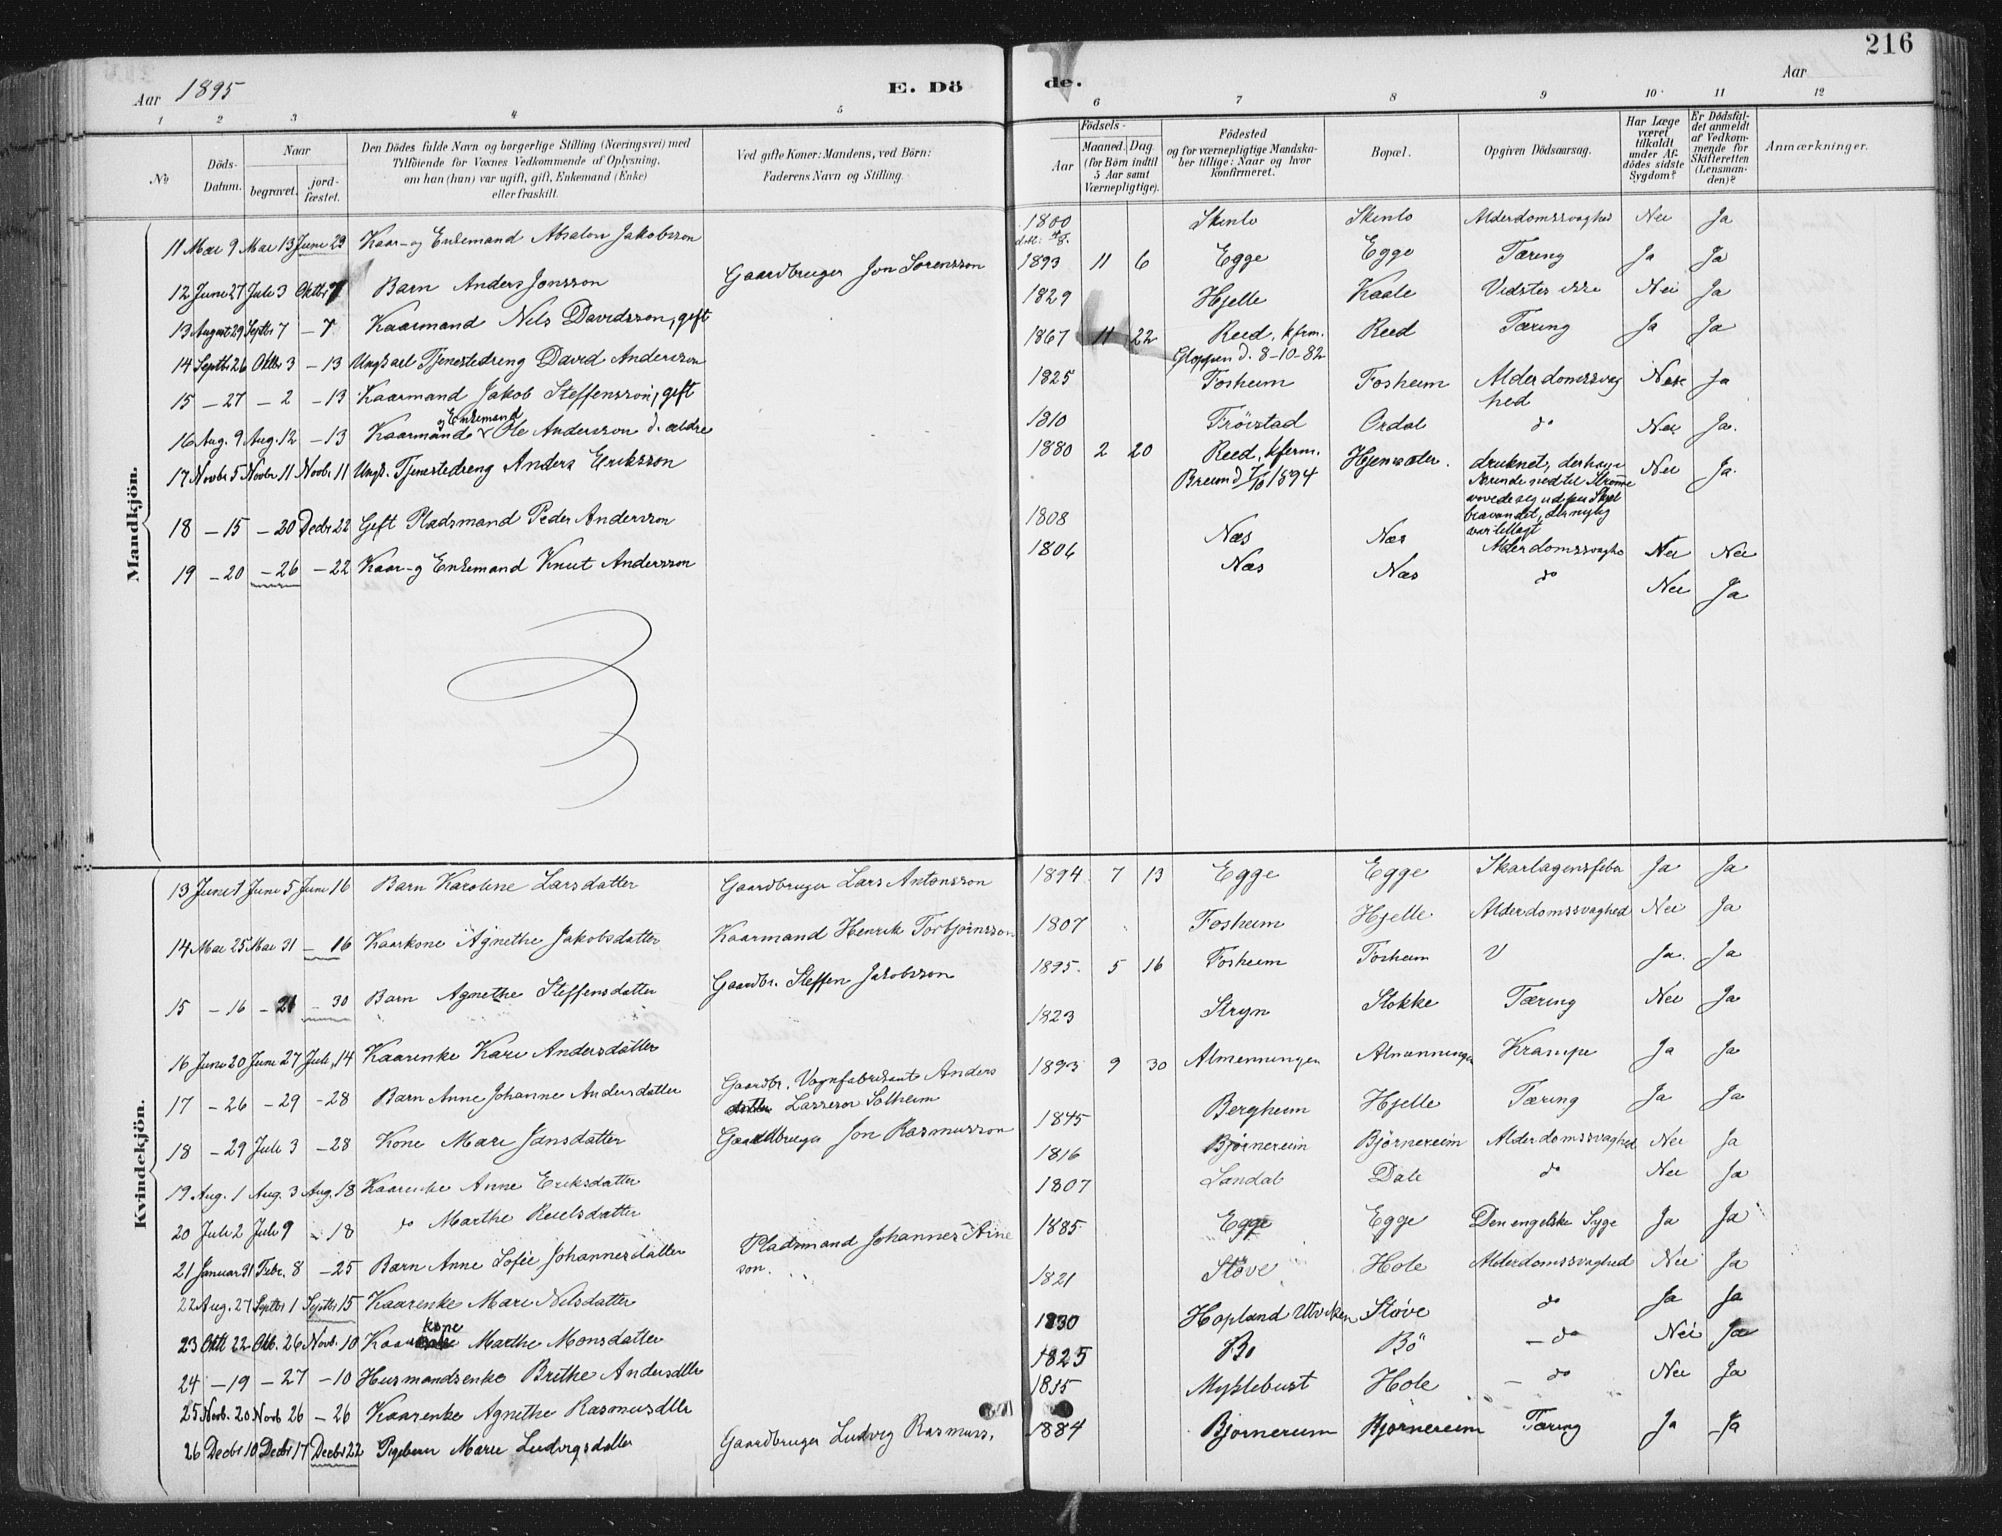 216
Aar 1895
E. Dö
de.
Aar
1 2 3 4 5 6 7 8 9 10 11 12
No
Döds-Datum.
Naar
begravet.
jord-fæstet.
Den Dödes fulde Navn og borgerlige Stilling (Næringsvei) med
Tilföiende for Voxnes Vedkommende af Oplysning,
om han (hun) var ugift, gift, Enkemand (Enke)
eller fraskilt.
Ved gifte Koner: Mandens, ved Börn:
Faderens Navn og Stilling.
Födsels-
Aar
Maaned. Dag
(for Börn indtil
5 Aar samt
Værnepligtige).
Födested
og for værnepligtige Mandska-
ber tillige: Naar og hvor
konfirmeret.
Bopæl.
Opgiven Dödsaarsag.
Har Læge
været
tilkaldt
under Af-
dödes sidste
Sygdom?
Er Dödsfal-
det anmeldt
af Vedkom-
mende for
Skifteretten
(Lensman-
den)?
Anmærkninger.
Mandkjön.
11 Mai 9 Mai 13 Juni 29 Kaar- og Enkemand Absalon Jakobsson 1800 Skinlo Skinlo Alderdomssvaghed Nei Ja
12 Juni 27 Juli 3 Oktbr 7 Barn Anders Jonsson Gaardbruger Jon Sørensson 1893 11 6 Egge Egge Tæring Ja Ja
13 August 29 Septbr 7 – 7 Kaarmand Nils Davidsson, gift 1829 Hjelle Kaale Vidstes ikke Nei Ja
14 Septbr 26 Oktbr 3 – 13 Ungkarl Tjenestedreng David Andersson 1867 11 22 Reed, kfrm. Reed Tæring Ja Ja
Gloppen d. 8-10-82
15 – 27 – 2 – 13 Kaarmand Jakob Steffensson, gift 1825 Fosheim Fosheim Alderdomssvag Nei Ja
hed
og Enkemand
16 Aug. 9 Aug. 12 – 13 Kaarmand Ole Andersson d. ældre 1810 Frøistad Ordal do Nei Ja.
17 Novbr 5 Novbr 11 Novbr 11 Ungk. Tjenestedreng Anders Eriksson 1880 2 20 Reed, kferm. Hjemsæter. druknet, der han i Nei Ja.
Breim d 7/10 1894 Ærende ned til Strømme
vovede sig ud paa Skjøl
brævandet, der nylig
var tillagt
18 – 15 – 20 Decbr 22 Gift Pladsmand Peder Andersson 1808 Næs Næs Alderdomssvaghd Nei Nei
19 – 20 – 26 – 22 Kaar- og Enkemand Knut Andersson 1806 Næs Næs do Nei Ja
Kvindekjön.
13 Juni 1 Juni 5 Juni 16 Barn Karoline Larsdatter Gaardbruger Lars Antonsson 1894 7 13 Egge Egge Skarlagensfeber Ja Ja
14 Mai 25 Mai 31 – 16 Kaarkone Agnethe Jakobsdatter Kaarmand Henrik Torbjørnsson 1807 Fosheim Hjelle Alderdomssvaghed Nei Ja
15 – 16 – 21 – 30 Barn Agnethe Steffensdatter Gaardbr. Steffen Jakobsson 1895. 5 16 Fosheim Fosheim Ja. Ja
16 Juni 20 Juni 27 Juli 14 Kaarenke Kari Andersdatter 1823 Stryn Stokke Tæring Nei Ja
17 – 26 – 29 – 28 Barn Anne Johanne Andersdatter Gaardbr. Vognfabrikant Anders 1893 9 30 Almenningen Almenningen Krampe Ja Ja
Lasseson Solheim
18 – 29 Juli 3 – 28 Kone Mari Jonsdatter Gaardbruger Jon Rasmusson 1845 Bergheim Hjelle Tæring Ja Ja
19 Aug. 1 Aug. 3 Aug. 18 Kaarenke Anne Eriksdatter 1816 Bjørnereim Bjørnereim Alderdomssvaghed Nei Ja
20 Juli 2 Juli 9 – 18 do Marthe Reielsdatter 1807 Sandal Dale do Nei Ja
21 Januar 31 Febr. 8 – 25 Barn Anne Sofie Johannesdatter Pladsmand Johannes Arne 1885 Egge Egge Den engelske Syge Ja Ja
son.
22 Aug. 27 Septbr 1 Septbr 15 Kaarenke Mari Nilsdatter 1821 Støve Hole Alderdomssvaghed Nei Ja
kone
23 Oktb 22 Okb. 26 Novb. 10 Kaar Marthe Monsdatter 1830 Hopland Utviken Støve do Ja Ja
24 – 19 – 27 – 10 Husmandsenke Brithe Andersdtr 1825 Bø Bö – do Nei Ja
25 Novb. 20 Novb 26 – 26 Kaarenke Agnethe Rasmusdtr 1815 Myklebust Hole – do Nei Ja
26 Decbr 10 Decbr 17 Decbr 22 Pigebarn Marie Ludvigsdatter Gaardbruger Ludvig Rasmuss. 1884 Bjørnereim Bjørnereim Tæring Ja Ja